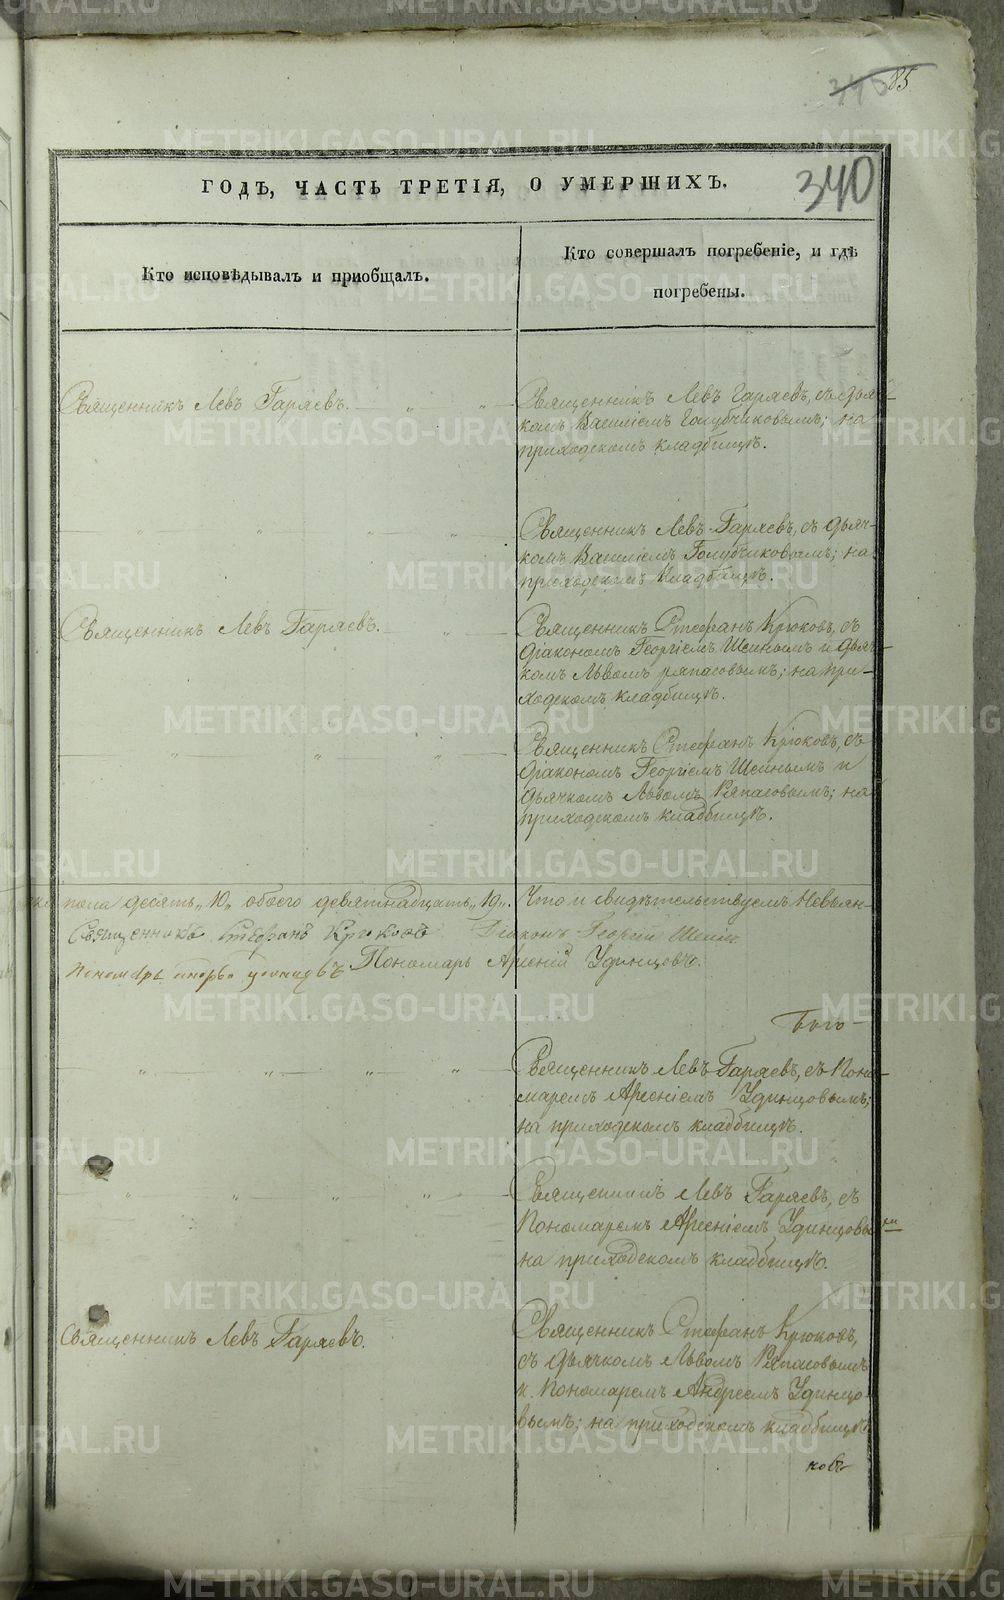 85
340
ГОДЪ, ЧАСТЬ ТРЕТІЯ, О УМЕРШИХЪ.
Кто исповѣдывалъ и приобщалъ.
Кто совершалъ погребеніе, и гдѣ
погребены.
Священникъ Левъ Гаряевъ.
Священникъ Левъ Гаряевъ, съ дья-
комъ Василіемъ Голубчиковымъ; на
приходскомъ кладбищѣ.
Священникъ Левъ Гаряевъ, съ дьяч-
комъ Василіемъ Голубчиковымъ; на
приходскомъ кладбищѣ.
Священникъ Левъ Гаряевъ.
Священникъ Стефанъ Крюковъ, съ
діакономъ Георгіемъ Шеинымъ и дьяч-
комъ Львомъ Ряпасовымъ; на при-
ходскомъ кладбищѣ.
Священникъ Стефанъ Крюковъ, съ
діакономъ Георгіемъ Шеинымъ и
дьячкомъ Львомъ Ряпасовымъ; на
приходскомъ кладбищѣ.
пола десять „10„ обоего девятнадцать „19„. Что и свидѣтельствуемъ Невьян-
Священникъ Стефанъ Крюковъ Діаконъ Георгій Шеинъ
Пономарь Андрей Удинцовъ Пономарь Арсеній Удинцовъ.
Священникъ Левъ Гаряевъ, съ Поно-
маремъ Арсеніемъ Удинцовымъ;
на приходскомъ кладбищѣ.
Священникъ Левъ Гаряевъ, съ
Пономаремъ Арсеніемъ Удинцовымъ
на приходскомъ кладбищѣ.
Священникъ Левъ Гаряевъ.
Священникъ Стефанъ Крюковъ,
съ дьячкомъ Львомъ Ряпасовымъ
и Пономаремъ Андреемъ Удинцо-
вымъ; на приходскомъ кладбищѣ.
ковъ
METRIKI.GASO-URAL.RU